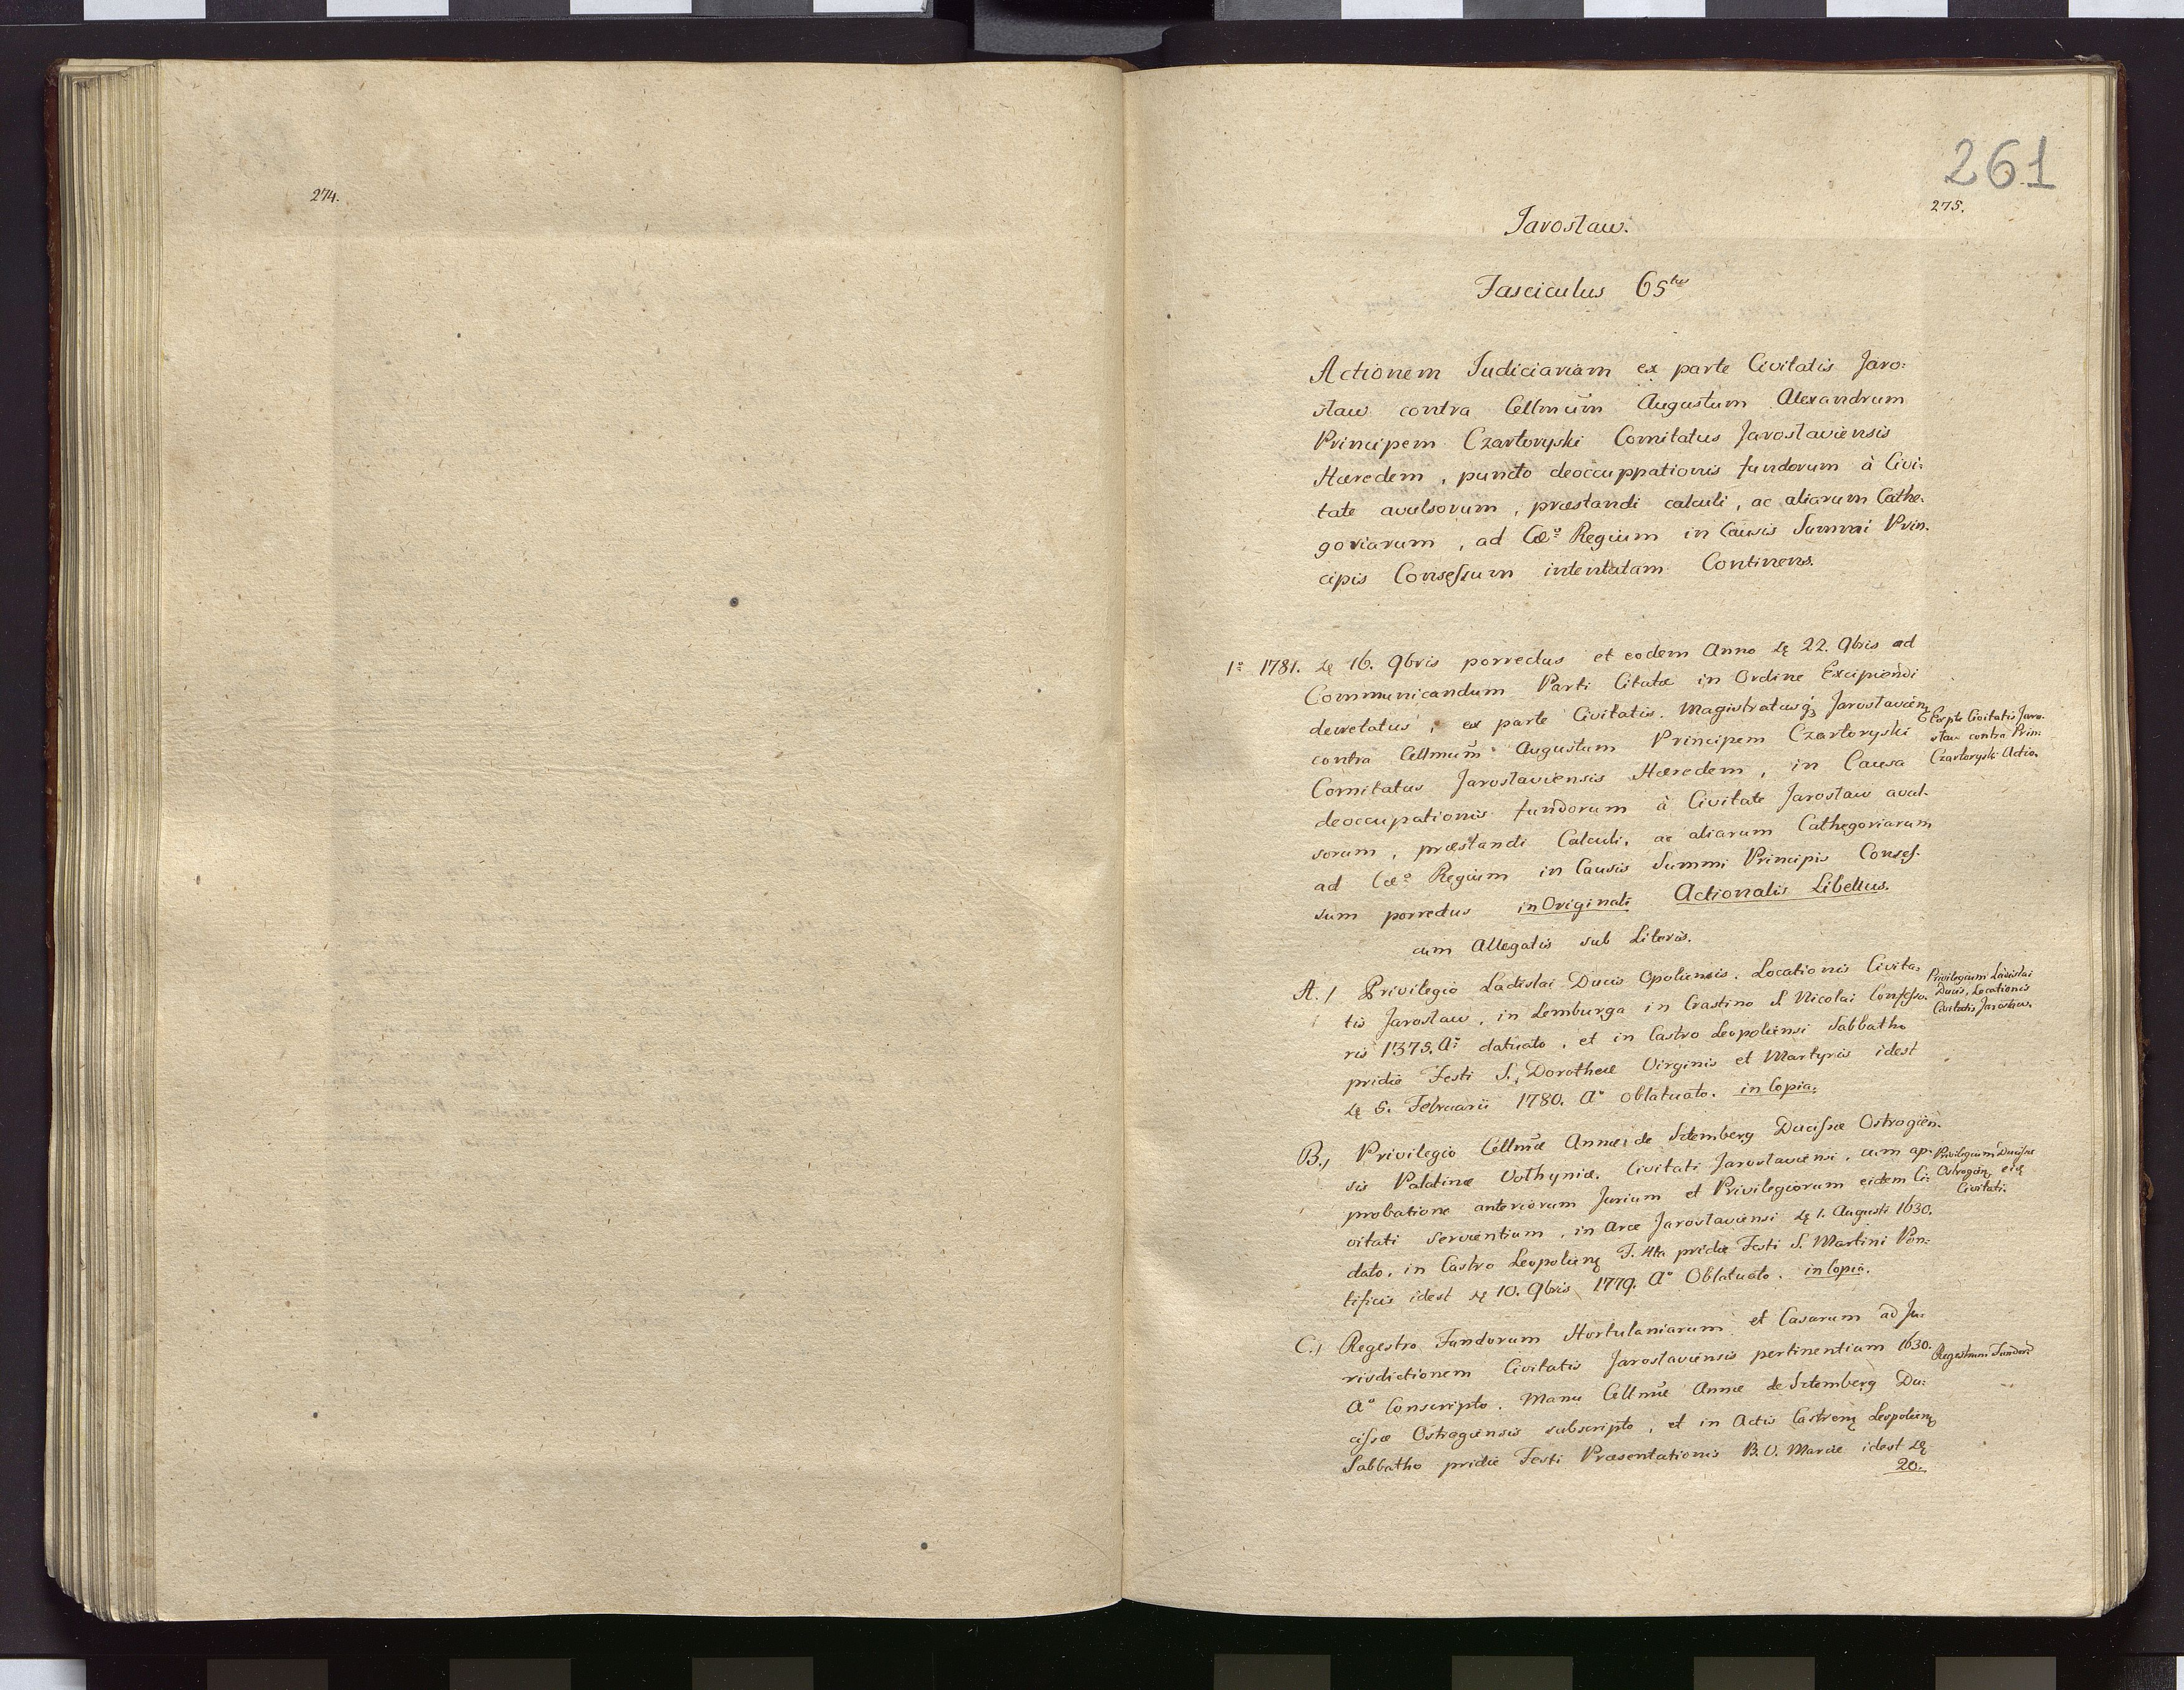 274.
261
275.
Jarosław.
Fasciculus 65tus
Actionem Judiciariam ex parte Civitatis Jaro:
sław contra Cellmum Augustum Alexandrum
Principem Czartoryski Comitatus Jarosłaviensis
Hæredem, puncto deoccuppationis fundorum à Civi:
tate avulsorum, præstandi calculi, ac aliarum Cathe:
goriarum, ad Cæo Regium in Causis Summi Prin:
cipis Consessum intentatam Continens.
1o 1781. 16. 9bris porrectus et eodem Anno 22. 9bris ad
Communicandum Parti Citatæ in Ordine Excipiendi
decretatus, ex parte Civitatis Magistratusq3 Jarosłavien
contra Cellmum Augustum Principem Czartoryski
Comitatus Jarosłaviensis Hæredem, in Causa
deoccupationis fundorum à Civitate Jarosław avul:
sorum, præstandi Calculi, ac aliarum Cathegoriarum
ad Cæo Regium in Causis Summi Principis Conses:
sum porrectus in Originali Actionalis Libellus.
cum Allegatis sub Literis.
Ex pte Civitatis Jaro:
sław contra Prin:
Czartoryski Actio.
A./ Privilegio Ladislai Ducis Opoliensis. Locationis Civita:
tis Jarosław, in Lemburga in Crastino S Nicolai Confesso:
ris 1375. Ao datuato, et in Castro Leopoliensi Sabbatho
pridie Festi S. Dorotheæ Virginis et Martyris idest
5. Februarii 1780. Ao oblatuato. in Copia.
Privilegium Ladislai
Ducis, Locationis
Civitatis Jarosław.
B./ Privilegio Cellmæ Annæ de Sztemberg Ducissæ Ostrogien:
sis Palatinæ Vołhyniæ. Civitati Jarosłaviensi, cum ap:
probatione anteriorum Jurium et Privilegiorum eidem Ci:
vitati servientium, in Arce Jarosłaviensi 1. Augusti 1630.
dato, in Castro Leopolien F. 4ta pridie Festi S. Martini Pon:
tificis idest 10. 9bris 1779. Ao Oblatuato. in Copia.
Privilegium Ducissæ
Ostrogien
Civitati.
C./ Regestro Fundorum Hortulaniarum et Casarum ad Ju:
risdictionem Civitatis Jarosłaviensis pertinentium 1630.
Ao Conscripto. Manu Cellmæ Annæ de Sztemberg Du:
cissæ Ostrogiensis subscripto, et in Actis Castren Leopolien
Sabbatho pridie Festi Præsentationis B. V. Mariæ idest
20.
Regestrum Fundorū